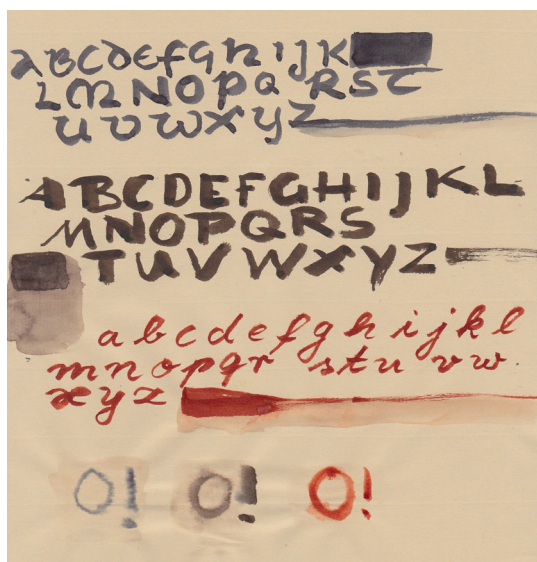 ABCDEFGHIJK
LMNOPQRST
UVWXYZ
ABCDEFGHIJKL
MNOPQRS
TUVWXYZ
abcdefghijkl
mnopqrstuvw
xyz
O! O! O!